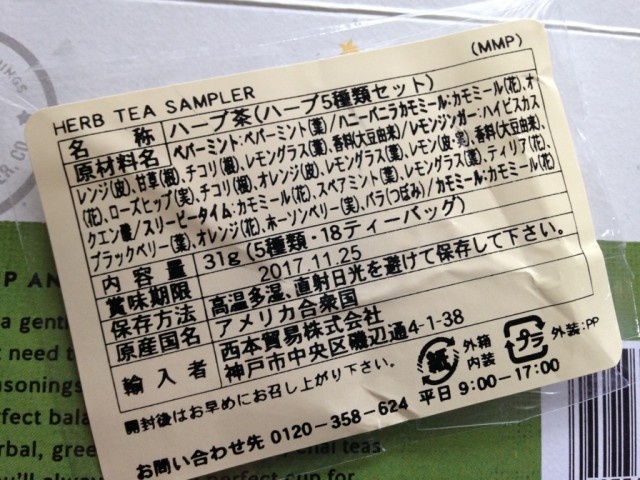 (MMP)
HERB TEA SAMPLER
名称 ハーブ茶(ハーブ5種類セット)
原材料名 ペパーミント:ペパーミント(葉)/ハニーバニラカモミール:カモミール(花)、オ
レンジ(皮)、甘草(根)、チコリ(根)、レモングラス(葉)、香料(大豆由来)/レモンジンガー:ハイビスカス
(花)、ローズヒップ(実)、チコリ(根)、オレンジ(皮)、レモングラス(葉)、レモン(皮・実)、香料(大豆由来)、
クエン酸/スリーピータイム:カモミール(花)、スペアミント(葉)、レモングラス(葉)、ティリア(花)、
ブラックベリー(葉)、オレンジ(花)、ホーソンベリー(実)、バラ(つぼみ)/カモミール:カモミール(花)
内容量 31g (5種類・18ティーバッグ)
賞味期限 2017.11.25
保存方法 高温多湿、直射日光を避けて保存して下さい。
原産国名 アメリカ合衆国
輸入者 西本貿易株式会社
神戸市中央区磯辺通4-1-38
開封後はお早めにお召し上がり下さい。
紙 外箱
内装
プラ 外装:PP
お問い合わせ先 0120-358-624 平日 9:00-17:00
P AN
a gentl
t need t
asonings
rfect bala
rbal, gree
teas
you'll alway
perfect cup for